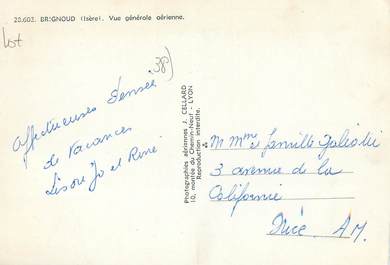 23.603. BRIGNOUD (Isère). Vue générale aérienne.
Lot
38)
Affectueuses Pensées
de vacances
Lisou Jo et René
Photographies aériennes J. CELLARD
10, montée du Chemin-Neuf - LYON
Reproduction interdite.
M Mme et famille
3 avenue de la
Californie
Nice AM.